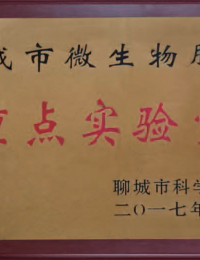 城市微生物肥
重点实验
聊城市科学
二〇一七年